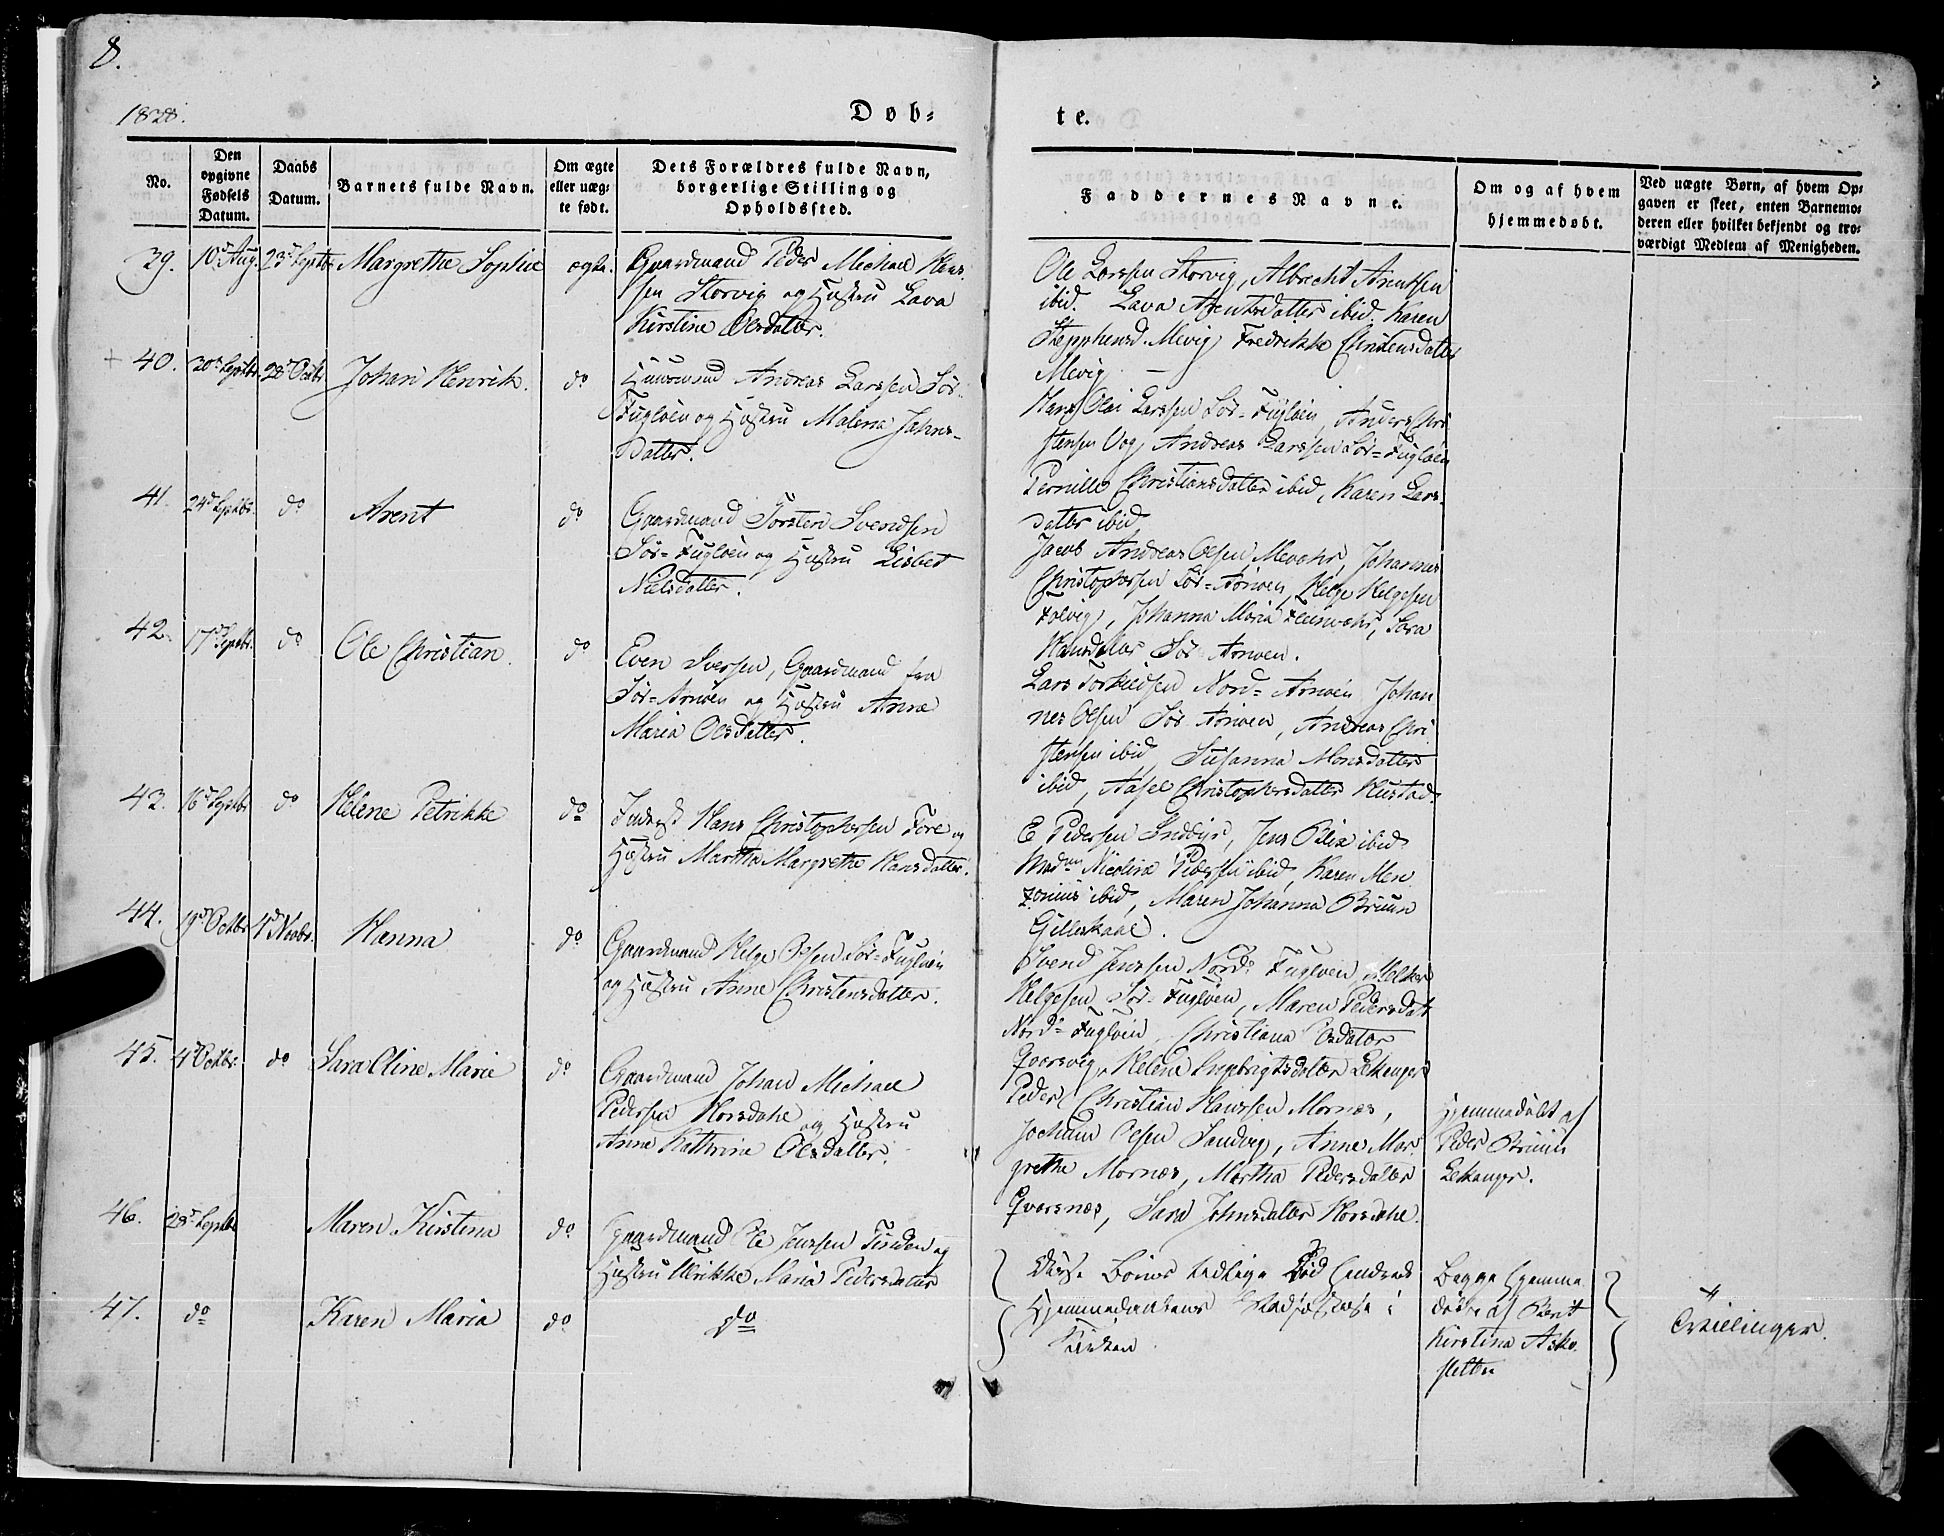 8.
1828.
Døb-
te.
No.
Den
opgivne
Fødsels
Datum.
Daabs
Datum.
Barnets fulde Navn.
Om ægte
eller uæg-
te født.
Dets Forældres fulde Navn,
borgerlige Stilling og
Opholdssted.
Faddernes Navne.
Om og af hvem
hjemmedøbt.
Ved uægte Børn, af hvem Op-
gaven er skeet, enten Barnemo-
deren eller hvilket bekjendt og tro-
værdigt Medlem af Menigheden.
39.
10d Aug.
23d Septbr
Margrethe Sophie
ægte
Gaardmand Peder Michael Han-
sen Storvig og Hustru Lava
Kirstine Olsdatter.
Ole Larssen Storvig, Albrecht Arentsen
ibid. Lava Arentsdatter ibid. Karen
Stepphensd. Mevig, Fredrikke Christensdatter
Mevig. —
+ 40.
30d Septbr
28d Octbr
Johan Henrik.
do
Huusmand Andreas Larssen Sør-
Fugløen og Hustru Malena Johns-
datter.
Hans Olai Larssen Sør-Fugløen, Anders Chri-
stensen Vog, Andreas Larssen Sør-Fugløen
Pernille Christiansdatter ibid, Karen Lars-
datter ibid.
41.
24d Septbr.
do
Arent
do
Gaardmand Torsten Svendsen
Sør-Fugløen og Hustru Lisbet
Nielsdatter.
Jacob Andreas Olsen Mevær, Johannes
Christophersen Sør-Arnøen, Helge Helgesen
, Johanna Maria , Sara
Hansdatter Sør-Arnøen.
42.
17d Septbr.
do
Ole Christian.
do
Even Iversen, Gaardmand fra
Sør-Arnøen og Hustru Anne
Maria Olsdatter.
Lars Torkildsen Nord-Arnøen Johan
nes Olsen Sør Arnøen, Andreas Chri
stensen ibid, Susanna Monsdatter
ibid, Aasel Christophersdatter Hustad.
43.
16d Septbr
do
Helene Petrikke
do
Inderst Hans Christophersen Fore og
Hustru Martha Margrethe Hansdatter.
E Pedersen Inddyr, Jens Blix ibid.
Madm Nicolina Pedersen ibid, Karen Men
zonius ibid, Maren Johanna Bruun
Gilleskaal.
44.
19d Octbr
1d Novbr.
Hanna
do
Gaardmand Helge Olsen Sør-Fugløen
og Hustru Anne Christensdatter.
Svend Jenssen Nord-Fugløen,
Helgesen Sør-Fugløen, Maren Pedersdatt
Nord-Fugløen, Christiana Olsdatter
Qvarsvig, Helena Lekanger
45.
4d Octbr.
do
Sara Oline Marie
do
Gaardmand Johan Michael
Pedersen Horsdahl og Hustru
Anne Kathrine Olsdatter.
Peder Christian Hanssen Mornæs,
Jochum Olsen Sandvig, Anne Mar-
grethe Mornæs, Martha Pedersdatter
Qvarsnæs, Sara Johnsdatter Horsdahl.
Hjemmedøbt af
Peder Bruun
Lekanger.
46.
28d Septbr
Maren Kirstina
do
Gaardmand Ole Jenssen Tinden og
Hustru Ulrikke Maria Pedersdatter
Disse Børns tidlige Død hindrede
Hjemmedaabens Stadfæstelse i
Kirken.
Begge hjemme
døbte af Berit
Kirstina Aske
sletten
Tvillinger.
47.
do
Karen Maria
do
do